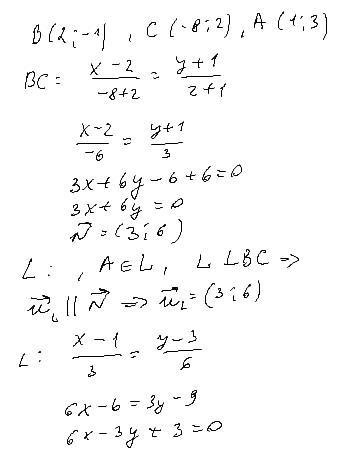 B(2;-1), C(-8;2), A(1;3)
BC: (x-2)/(-8+2) = (y+1)/(2+1)
(x-2)/(-6) = (y+1)/3
3x+6y-6+6=0
3x+6y=0
N⃗ = (3;6)
L: , A∈L, L⊥BC =>
u⃗_L || N⃗ => u⃗_L = (3;6)
L: (x-1)/3 = (y-3)/6
6x-6=3y-9
6x-3y+3=0